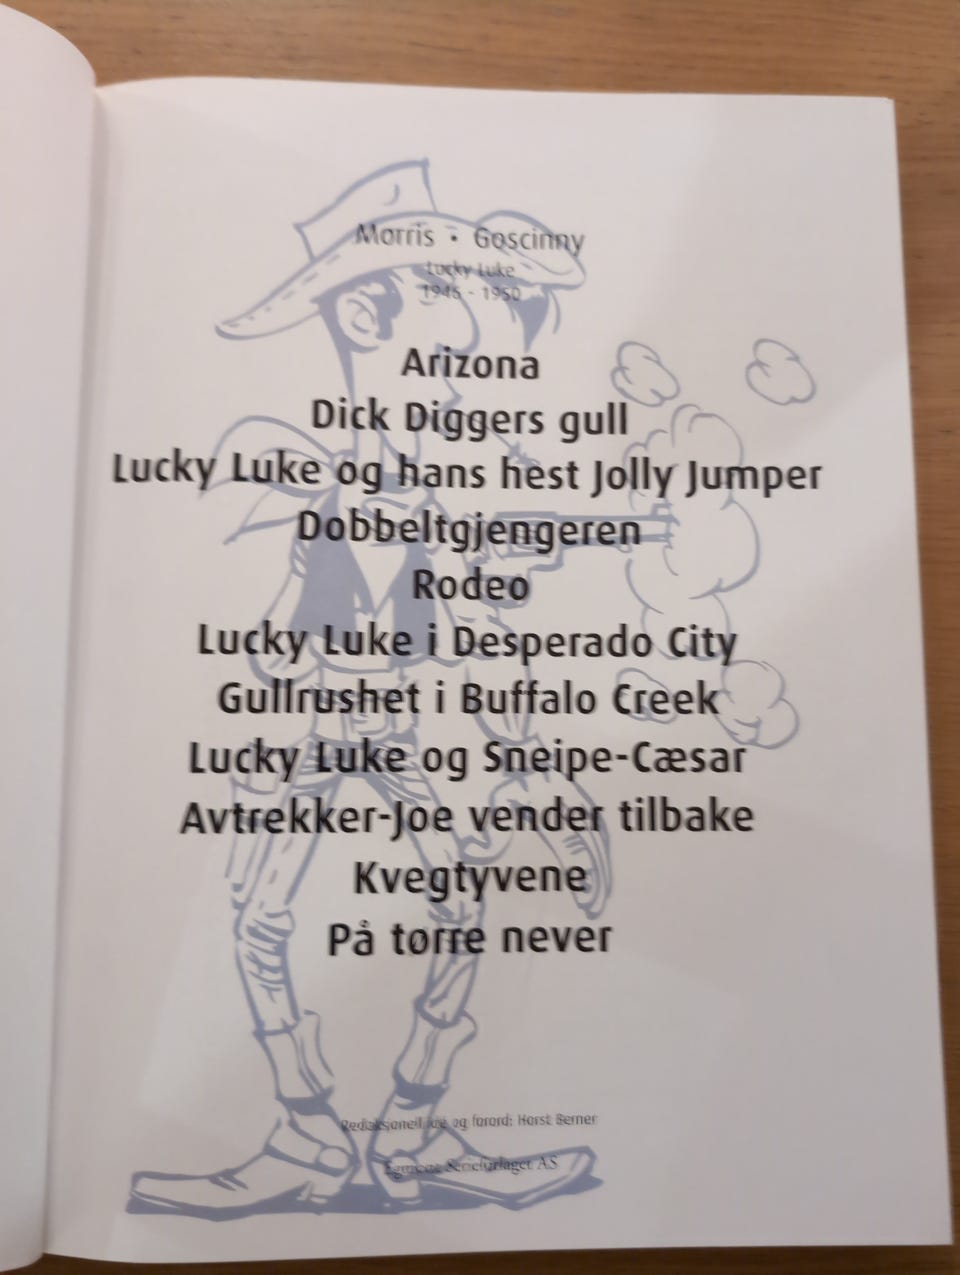 Morris • Goscinny
Lucky Luke
1946 - 1950
Arizona
Dick Diggers gull
Lucky Luke og hans hest Jolly Jumper
Dobbeltgjengeren
Rodeo
Lucky Luke i Desperado City
Gullrushet i Buffalo Creek
Lucky Luke og Sneipe-Cæsar
Avtrekker-Joe vender tilbake
Kvegtyvene
På tørre never
Redaksjonell idé og forord: Horst Berner
Egmont Serieforlaget AS